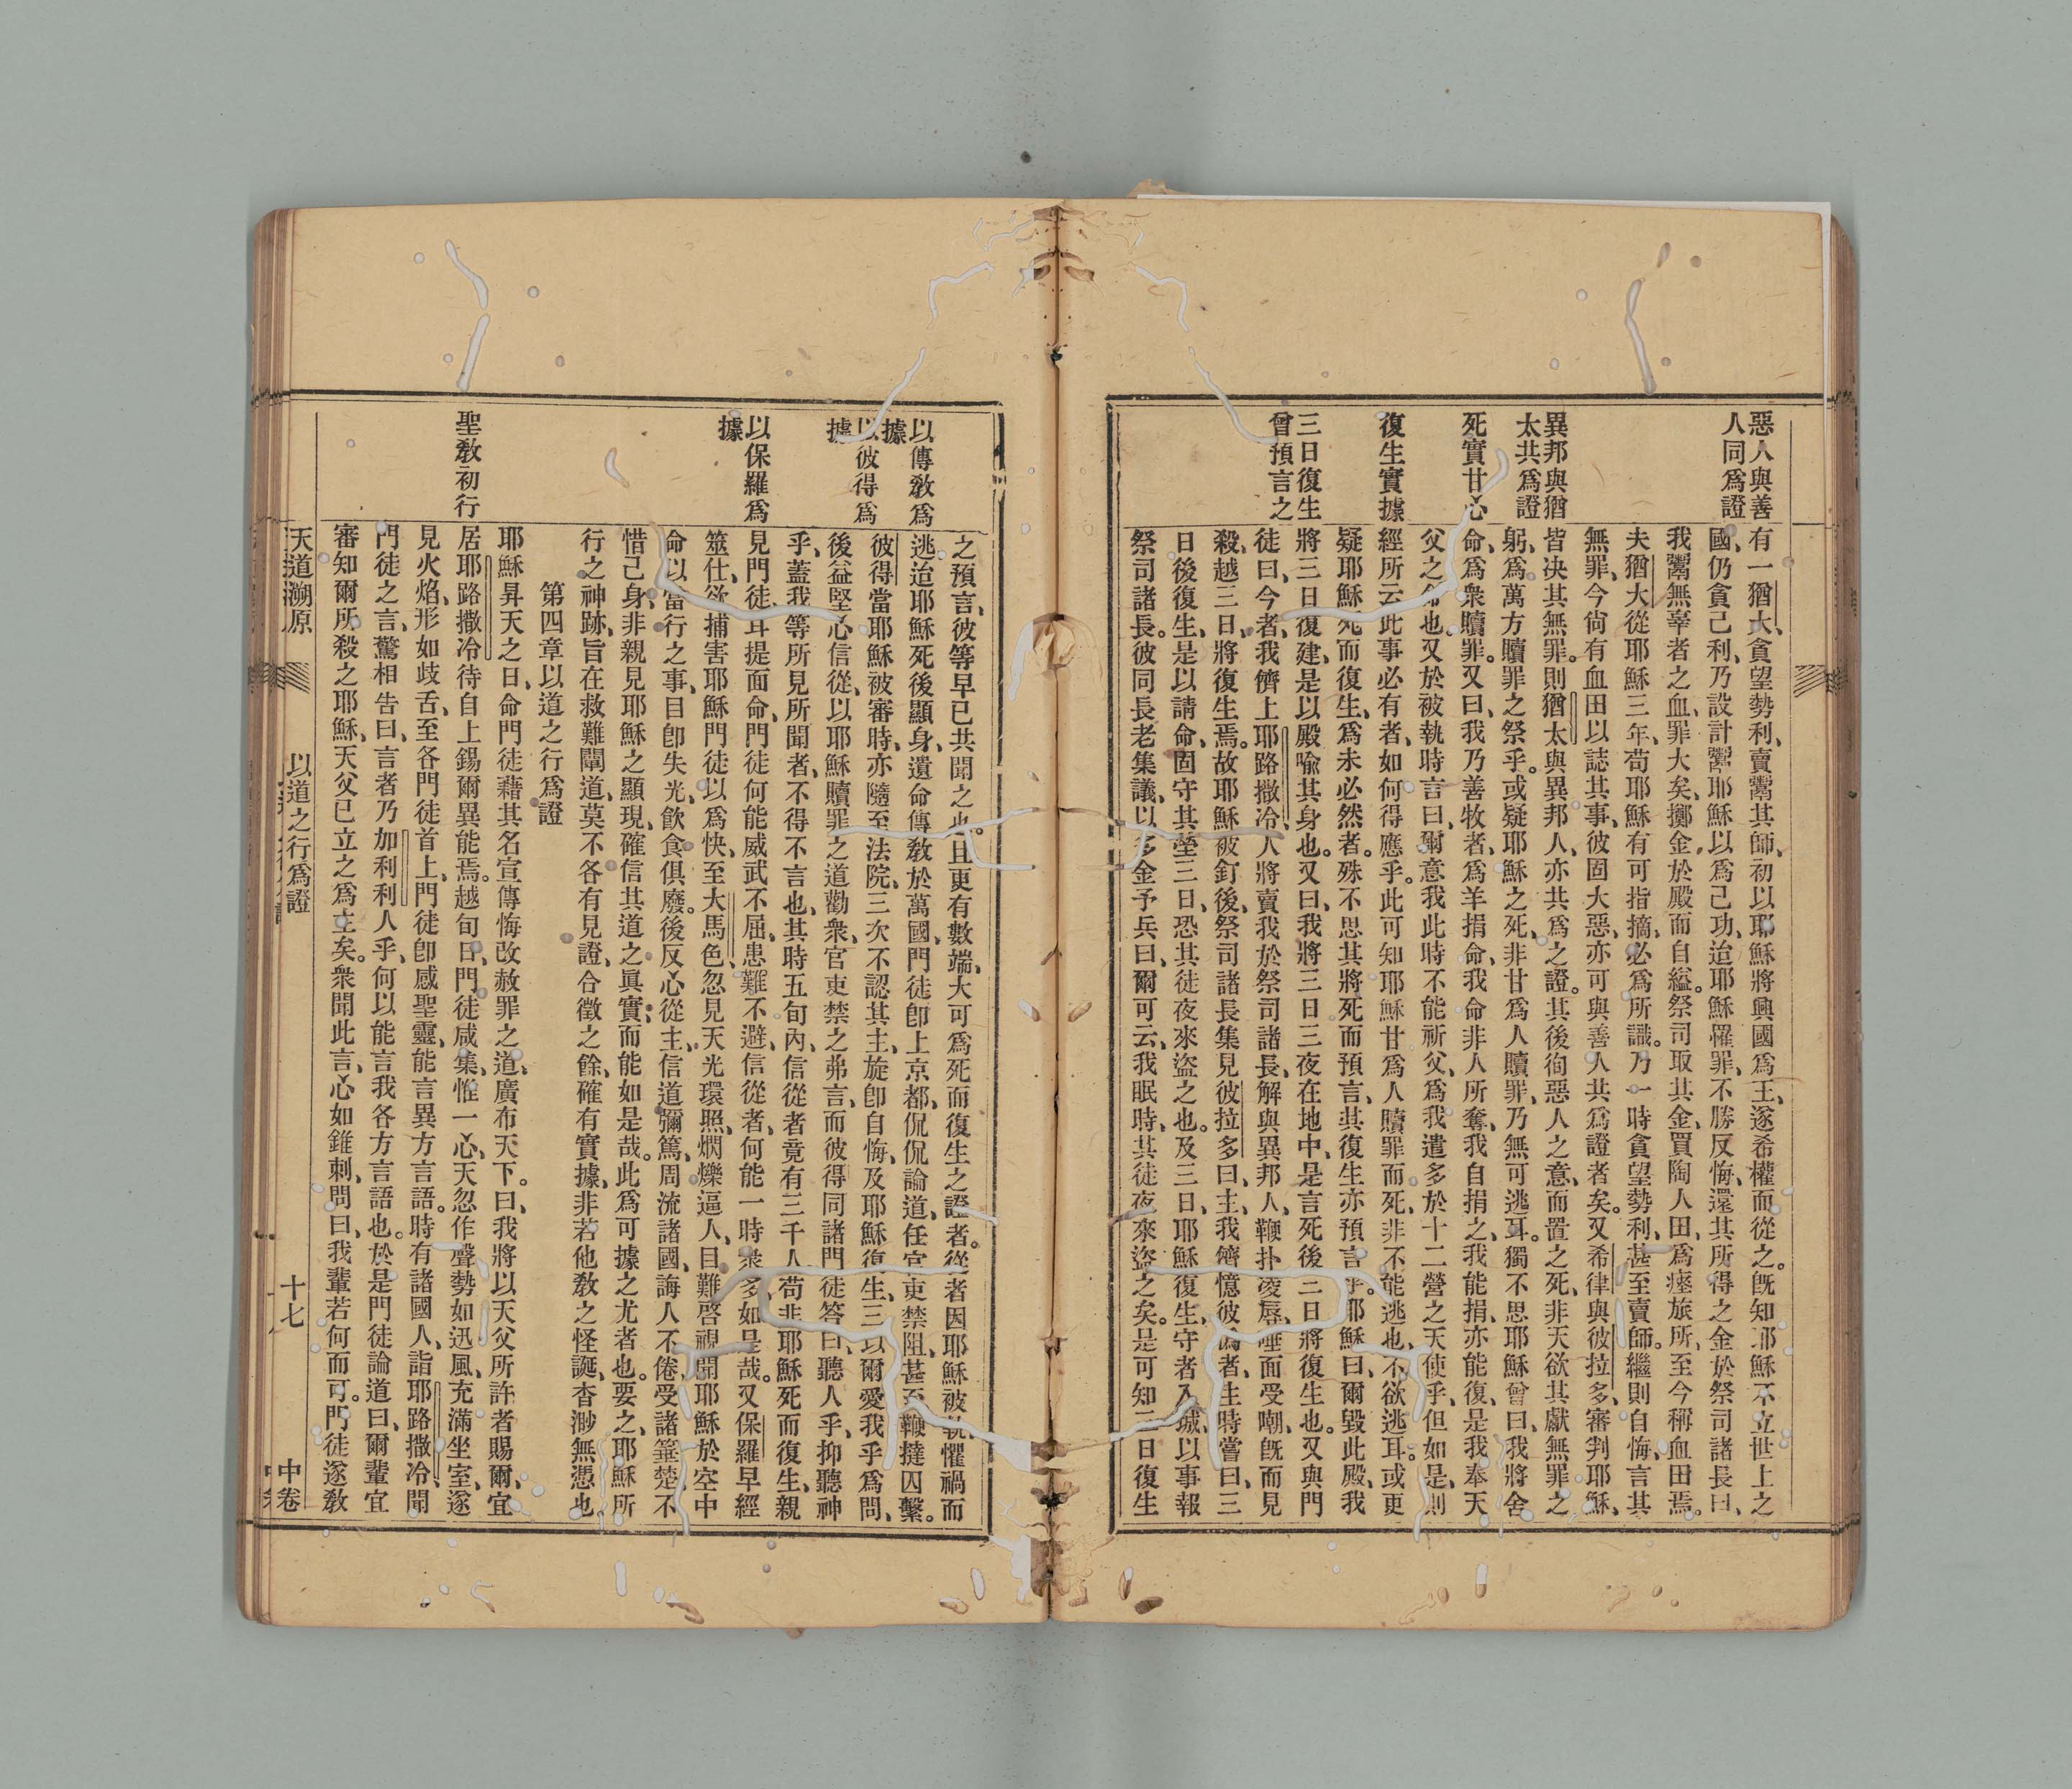 惡人與善
人同爲證
異邦與猶
太共爲證
死實甘心
復生實據
三日復生
曾預言之
有一猶太貪望勢利、賣鬻其師、初以耶穌將興國爲王、遂希權而從之。旣知耶穌不立世上之
國、仍貪己利、乃設計鬻耶穌以爲己功、迨耶穌罹罪、不勝反悔、還其所得之金於祭司諸長曰、
我鬻無辜者之血、罪大矣、擲金於殿而自縊。祭司取其金、買陶人田、爲瘞旅所、至今稱血田焉。
夫猶大從耶穌三年、苟耶穌有可指摘、必爲所識。乃一時貪望勢利、甚至賣師。繼則自悔、言其
無罪、今尙有血田以誌其事、彼固大惡、亦可與善人共爲證者矣。又希律與彼拉多、審判耶穌、
皆决其無罪。則猶太與異邦人、亦共爲之證。其後徇惡人之意、而置之死、非天欲其獻無罪之
躬、爲萬方贖罪之祭乎。或疑耶穌之死、非甘爲人贖罪、乃無可逃耳。獨不思耶穌曾曰、我將舍
命、爲衆贖罪。又曰、我乃善牧者、爲羊捐命、我命非人所奪、我自捐之、我能捐、亦能復、是我奉天
父之命也。又於被執時言曰、爾意我此時不能祈父、爲我遣多於十二營之天使乎、但如是、則
經所云此事必有者、如何得應乎。此可知耶穌甘爲人贖罪而死、非不能逃也、不欲逃耳。或更
疑耶穌死而復生、爲未必然者。殊不思其將死而預言、其復生亦預言乎。耶穌曰、爾毀此殿、我
將三日復建、是以殿喻其身也。又曰、我將三日三夜在地中、是言死後三日將復生也。又與門
徒曰、今者、我儕上耶路撒冷、人將賣我於祭司諸長、解與異邦人、鞭扑凌辱、唾面受嘲、旣而見
殺、越三日、將復生焉。故耶穌被釘後、祭司諸長集見彼拉多曰、主、我儕憶彼僞者、生時嘗曰、三
日後復生、是以請命、固守其塋三日、恐其徒夜來盜之也。及三日、耶穌復生、守者入城、以事報
祭司諸長。彼同長老集議、以多金予兵曰、爾可云、我眠時、其徒夜來盜之矣。是可知三日復生
以傳敎爲
據
以彼得爲
據
以保羅爲
據
聖敎初行
之預言、彼等早已共聞之也。且更有數端、大可爲死而復生之證者。從者因耶穌被執、懼禍而
逃、迨耶穌死後顯身、遺命傳敎於萬國、門徒卽上京都、侃侃論道、任官吏禁阻、甚至鞭撻囚繫。
彼得當耶穌被審時、亦隨至法院、三次不認其主、旋卽自悔、及耶穌復生、三以爾愛我乎爲問、
後益堅心信從、以耶穌贖罪之道勸衆、官吏禁之弗言、而彼得同諸門徒答曰、聽人乎、抑聽神
乎、蓋我等所見所聞者、不得不言也、其時五旬內、信從者竟有三千人、苟非耶穌死而復生、親
見門徒、耳提面命、門徒何能威武不屈、患難不避、信從者、何能一時衆多如是哉。又保羅早經
筮仕、欲捕害耶穌門徒以爲快、至大馬色、忽見天光環照、燗爍逼人、目難啓視、聞耶穌於空中
命以當行之事、目卽失光、飮食俱廢。後反心從主、信道彌篤、周流諸國、誨人不倦、受諸箠楚、不
惜己身、非親見耶穌之顯現、確信其道之眞實、而能如是哉。此爲可據之尤者也。要之、耶穌所
行之神跡、旨在救難闡道、莫不各有見證、合徵之餘、確有實據、非若他敎之怪誕、杳渺無憑也。
第四章以道之行爲證
耶穌昇天之日、命門徒藉其名宣傳悔改赦罪之道、廣布天下。曰、我將以天父所許者賜爾、宜
居耶路撒冷、待自上錫爾異能焉。越旬日、門徒咸集、惟一心、天忽作聲勢如迅風、充滿坐室、遂
見火焰、形如歧舌、至各門徒首上、門徒卽感聖靈、能言異方言語。時有諸國人、詣耶路撒冷、聞
門徒之言、驚相告曰、言者乃加利利人乎、何以能言我各方言語也。於是門徒論道曰、爾輩宜
審知爾所殺之耶穌、天父已立之爲主矣。衆聞此言、心如錐刺、問曰、我輩若何而可。門徒遂敎
天道溯原
以道之行爲證
十七
中卷